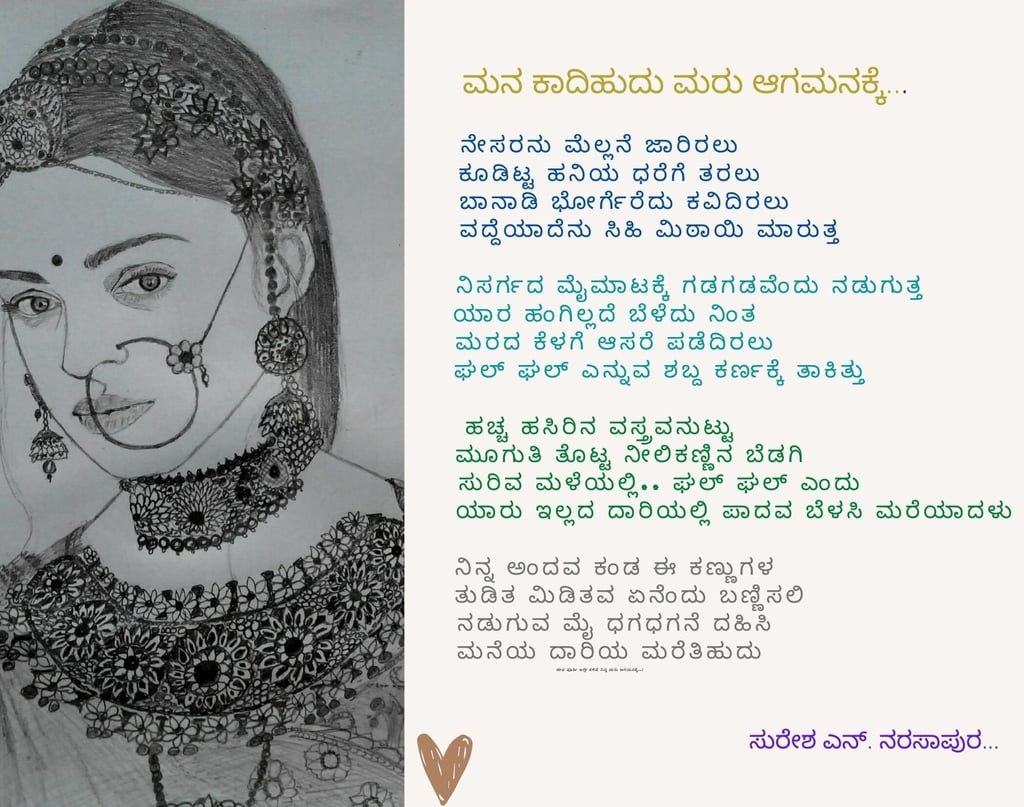 ಮನ ಕಾದಿಹುದು ಮರು ಆಗಮನಕ್ಕೆ...
ನೇಸರನು ಮೆಲ್ಲನೆ ಜಾರಿರಲು
ಕೂಡಿಟ್ಟ ಹನಿಯ ಧರೆಗೆ ತರಲು
ಬಾನಾಡಿ ಭೋರ್ಗೆರೆದು ಕವಿದಿರಲು
ವದ್ದೆಯಾದೆನು ಸಿಹಿ ಮಿಠಾಯಿ ಮಾರುತ್ತ
ನಿಸರ್ಗದ ಮೈಮಾಟಕ್ಕೆ ಗಡಗಡವೆಂದು ನಡುಗುತ್ತ
ಯಾರ ಹಂಗಿಲ್ಲದೆ ಬೆಳೆದು ನಿಂತ
ಮರದ ಕೆಳಗೆ ಆಸರೆ ಪಡೆದಿರಲು
ಘಲ್ ಘಲ್ ಎನ್ನುವ ಶಬ್ದ ಕರ್ಣಕ್ಕೆ ತಾಕಿತ್ತು
ಹಚ್ಚ ಹಸಿರಿನ ವಸ್ತ್ರವನುಟ್ಟು
ಮೂಗುತಿ ತೊಟ್ಟ ನೀಲಿಕಣ್ಣಿನ ಬೆಡಗಿ
ಸುರಿವ ಮಳೆಯಲ್ಲಿ.. ಘಲ್ ಘಲ್ ಎಂದು
ಯಾರು ಇಲ್ಲದ ದಾರಿಯಲ್ಲಿ ಪಾದವ ಬೆಳಸಿ ಮರೆಯಾದಳು
ನಿನ್ನ ಅಂದವ ಕಂಡ ಈ ಕಣ್ಣುಗಳ
ತುಡಿತ ಮಿಡಿತವ ಏನೆಂದು ಬಣ್ಣಿಸಲಿ
ನಡುಗುವ ಮೈ ಧಗಧಗನೆ ದಹಿಸಿ
ಮನೆಯ ದಾರಿಯ ಮರೆತಿಹುದು
ಸುರೇಶ ಎನ್. ನರಸಾಪುರ...